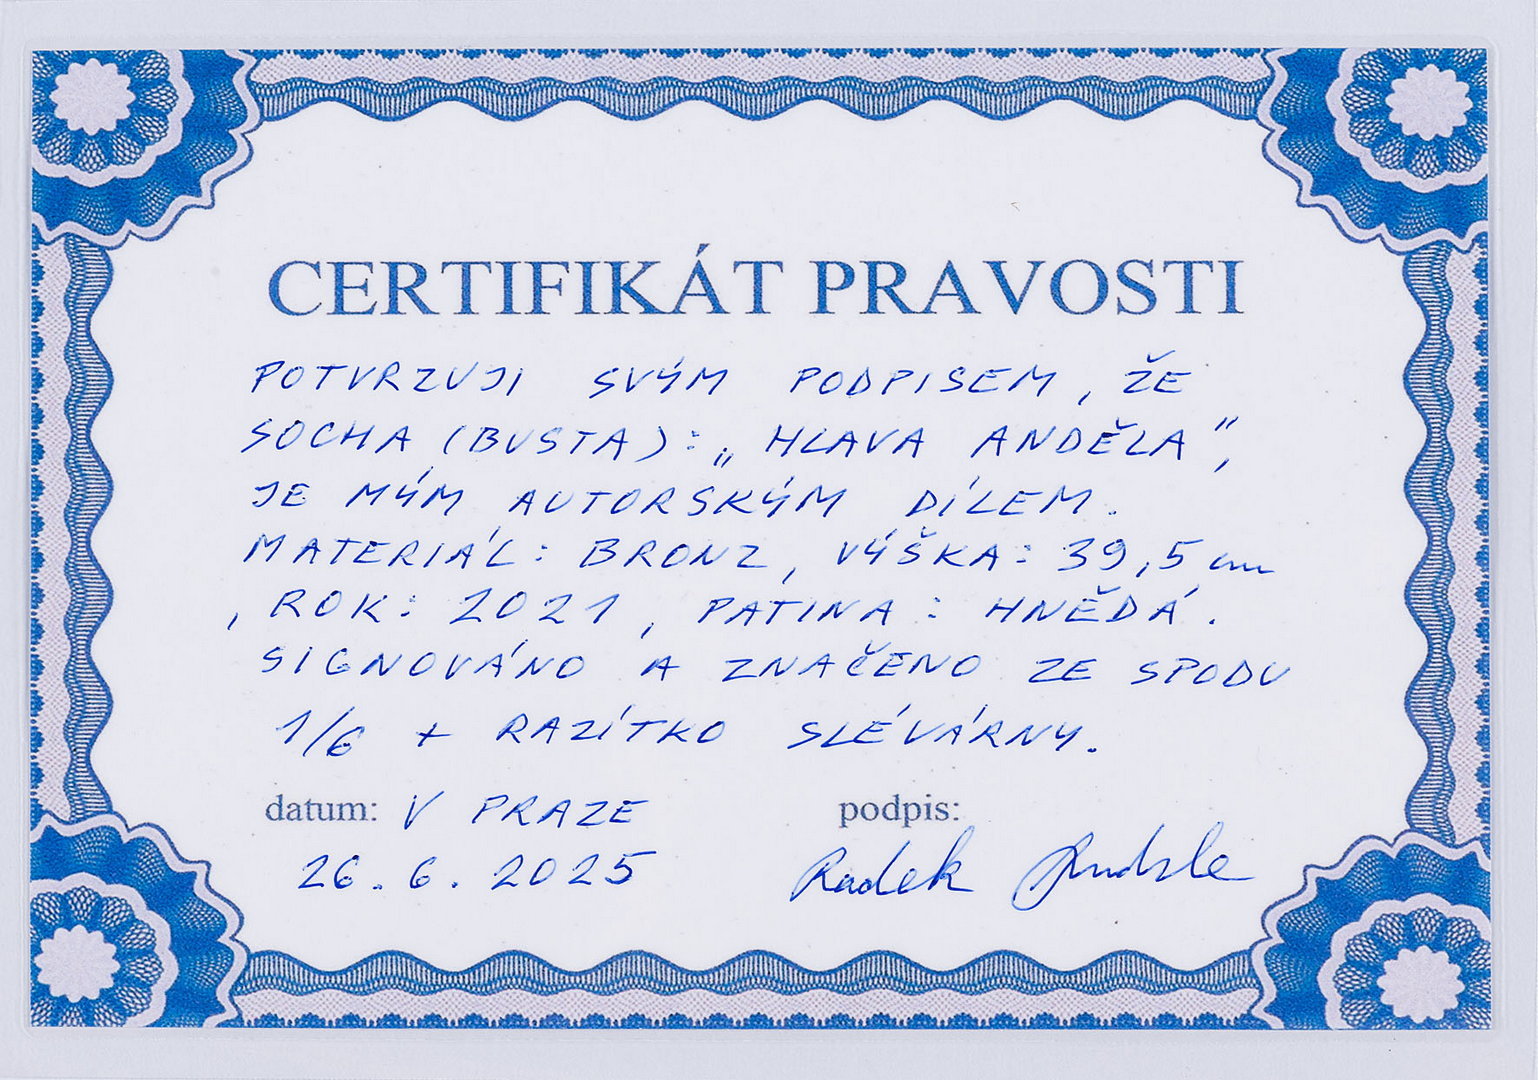 CERTIFIKÁT PRAVOSTI
POTVRZUJI SVÝM PODPISEM, ŽE
SOCHA (BUSTA): „HLAVA ANDĚLA",
JE MÝM AUTORSKÝM DÍLEM.
MATERIÁL: BRONZ, VÝŠKA: 39,5 cm
, ROK: 2021, PATINA: HNĚDÁ.
SIGNOVÁNO A ZNAČENO ZE SPODU
1/6 + RAZÍTKO SLÉVÁRNY.
datum: V PRAZE
podpis:
26.6.2025
Radek